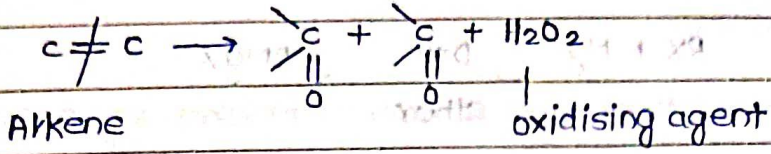 C=C → C + C + H2O2
O O
Alkene oxidising agent